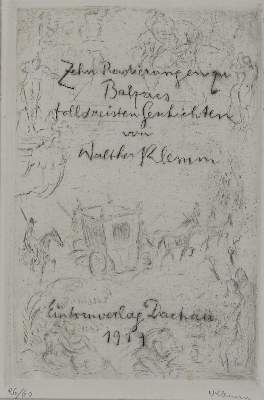 Zehn Radierungen zu
Balzacs
tolldreisten Geschichten
von
Walther Klemm
Einhornverlag Dachau
Klemm